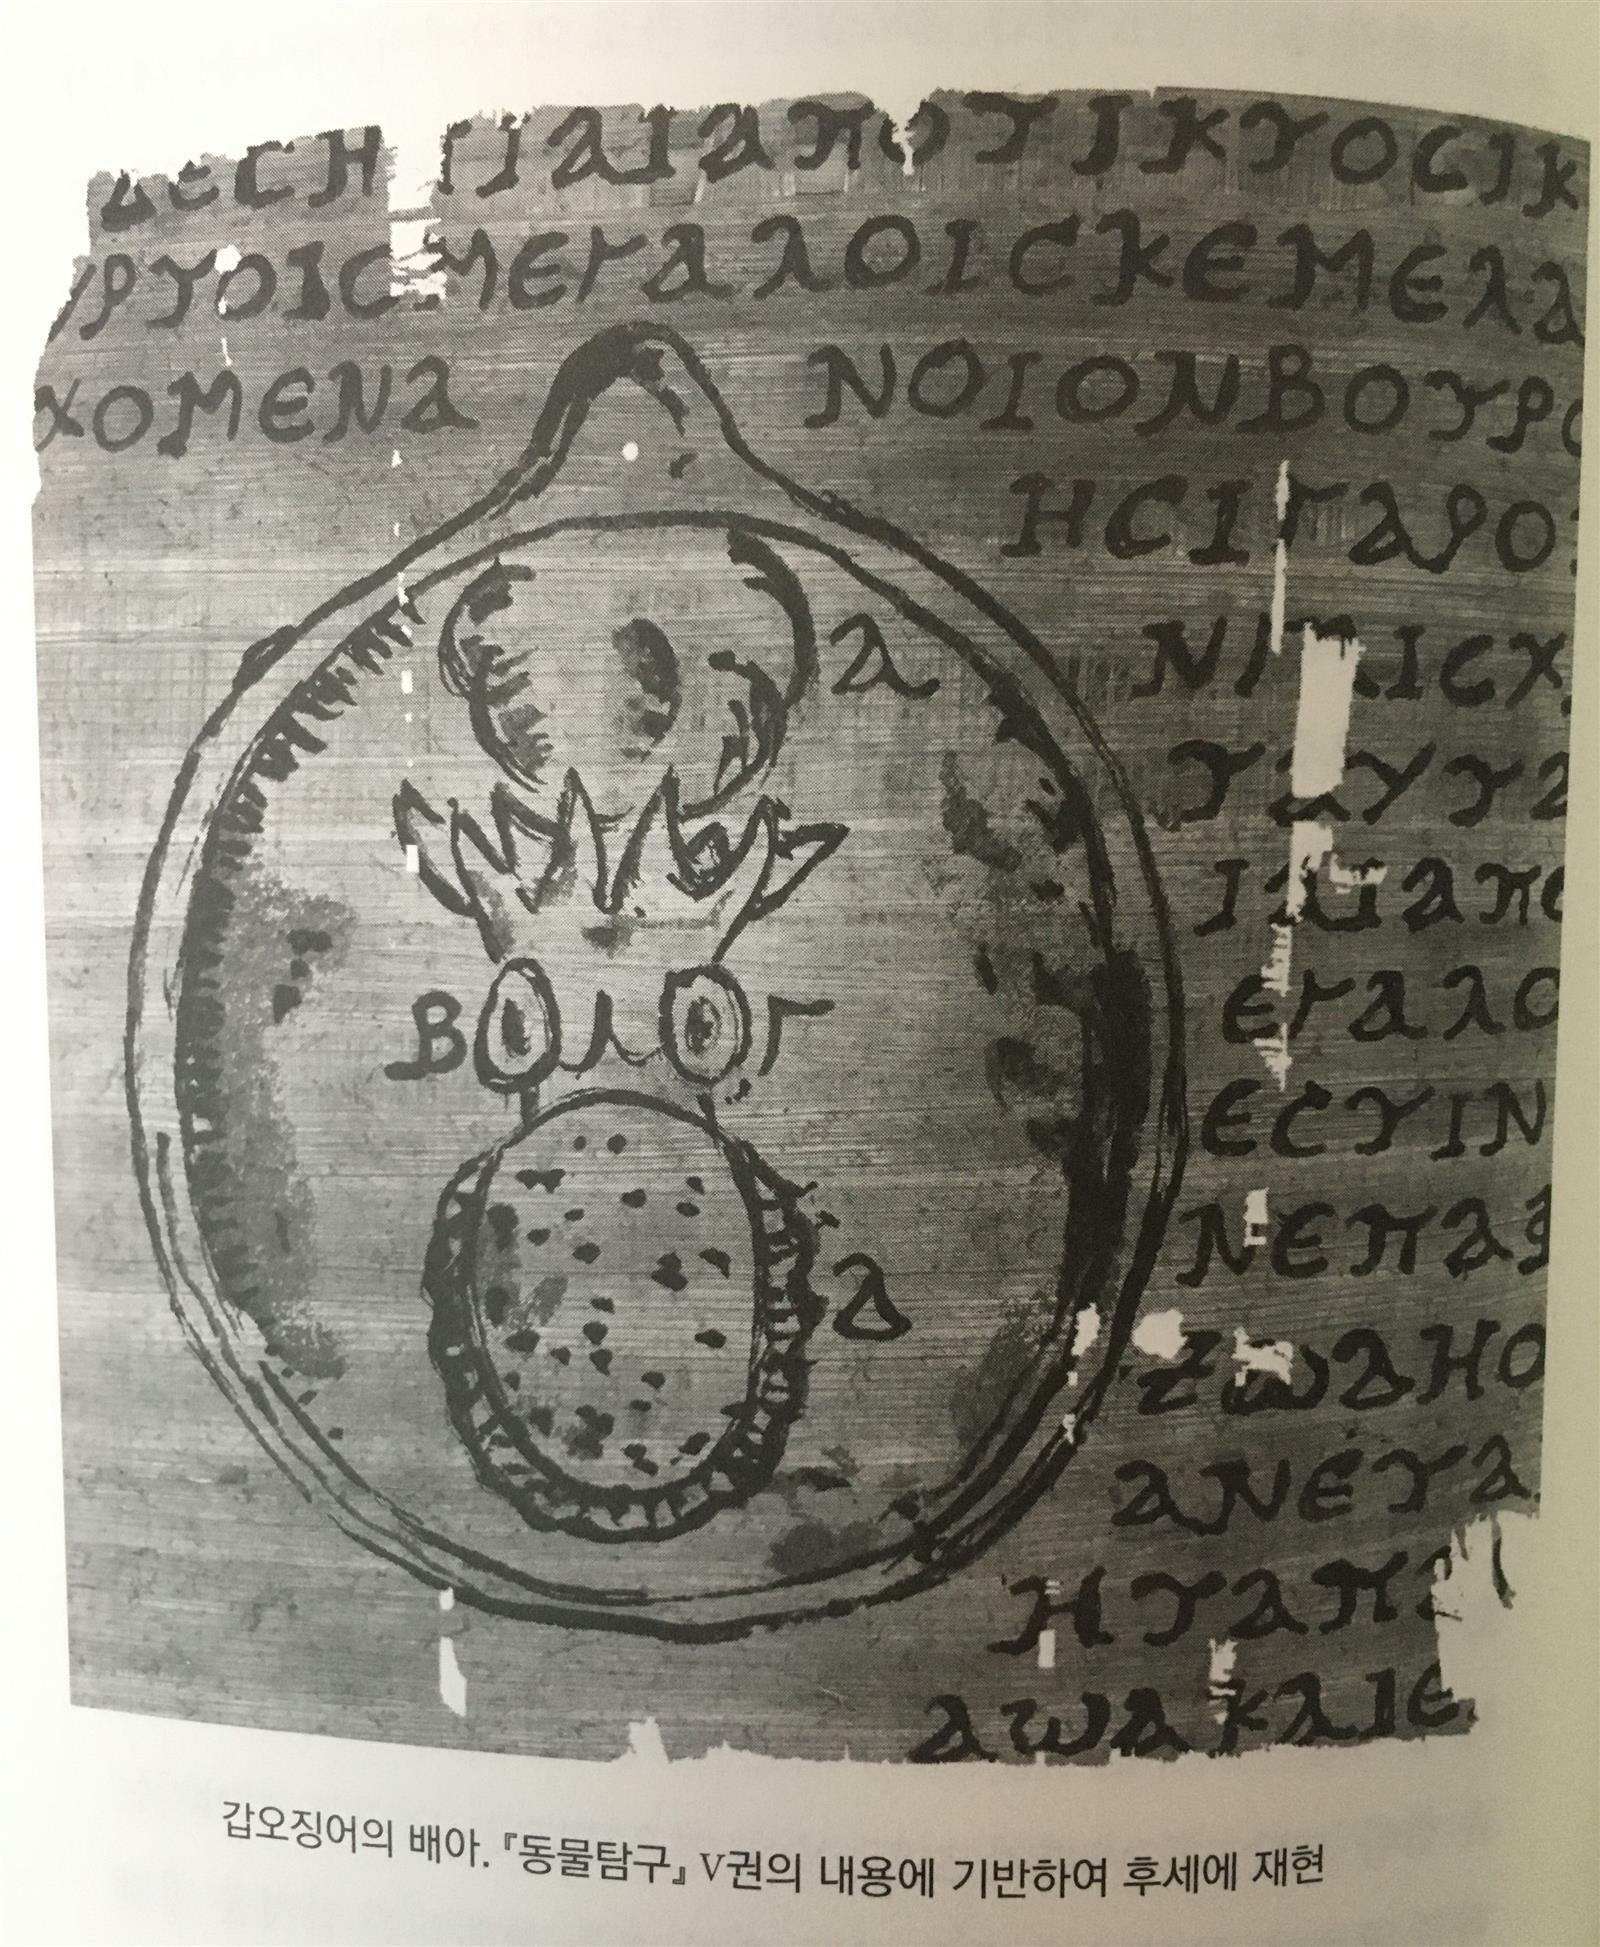 ΔΕCΗΠΙΑΙΑΠΟΤΙΚΤΟCΙΚ
ΥΡΤΟΙCΜΕΓΑΛΟΙCΚΕΜΕΛΑ
ΧΟΜΕΝΑ ΝΟΙΟΝΒΟΤΡΟ
ΗCΙΓΑΡΟ
Α
ΤΑΥΤΑ
ΙΑΙΑΠΟ
ΕΓΑΛΟ
Β Γ
ΕCΤΙΝ
ΝΕΠΑΦ
Δ
ΖΩΔΗΟ
ΑΝΕΤΑ
ΗΤΑΠΑ
ΔΩΔΚΑΙΕ
갑오징어의 배아. 『동물탐구』 V권의 내용에 기반하여 후세에 재현